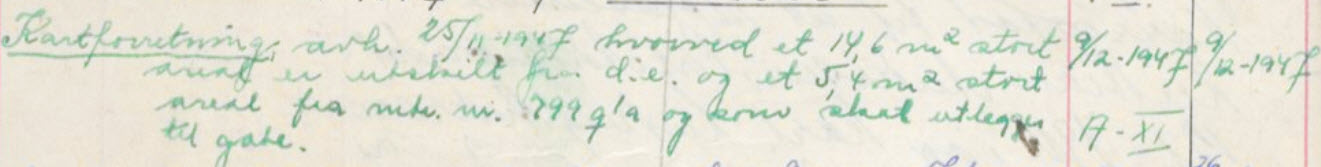 Kartforretning, avh. 25/11-1947 hvorved et 14,6 m² stort 9/12-1947 9/12-1947
areal er utskilt fra d.e. og et 5,4 m² stort
areal fra mtr. nr. 799 q'a og som skal utlegges A-XI
til gate.